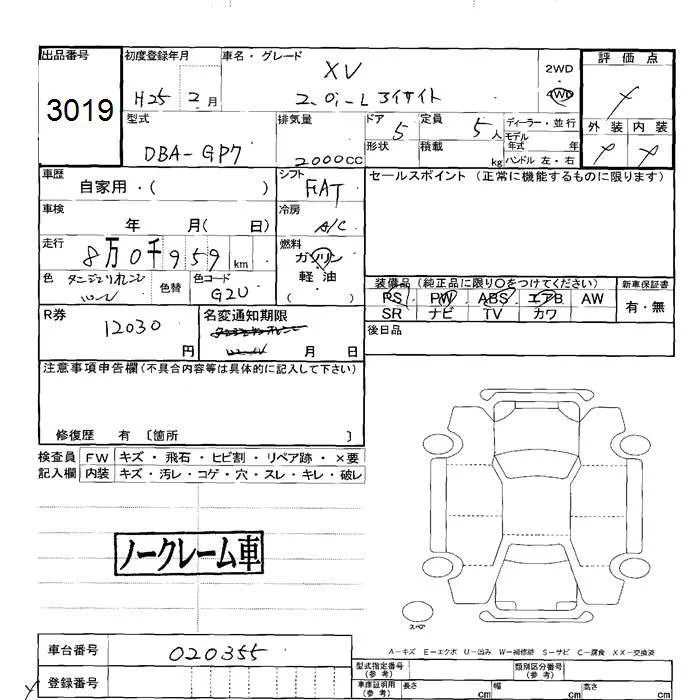 出品番号 初度登録年月 車名・グレード 2WD 評価点
3019 H25 2月 XV 4WD
2.0i-L アイサイト
型式 排気量 ドア 5 定員 5人 ディーラー・並行 外装 内装
DBA-GP7 2000cc 形状 積載 kg モデル年式 年
ハンドル 左・右
車歴 シフト セールスポイント (正常に機能するものに限ります)
自家用・( ) FAT
車検 冷房
年 月( 日) A/C
走行 8万0千959km 燃料
ガソリン
色 色替 色コード 軽油
G2U ( )
装備品 (純正品に限り○をつけてください) 新車保証書
PS PW ABS エアB AW 有・無
SR ナビ TV カワ
R券 名変通知期限 後日品
12030
円 月 日
注意事項申告欄 (不具合内容等は具体的に記入して下さい)
修復歴 有 〔箇所 〕
検査員 FW キズ・飛石・ヒビ割・リペア跡・×要
記入欄 内装 キズ・汚レ・コゲ・穴・スレ・キレ・破レ
ノークレーム車
スペア
A-キズ E-エクボ U-凹み W-補修跡 S-サビ C-腐食 XX-交換済
車台番号 020355
型式指定番号(参考) 類別区分番号(参考)
登録番号
車庫証明用(参考) 長さ cm 幅 cm 高さ cm